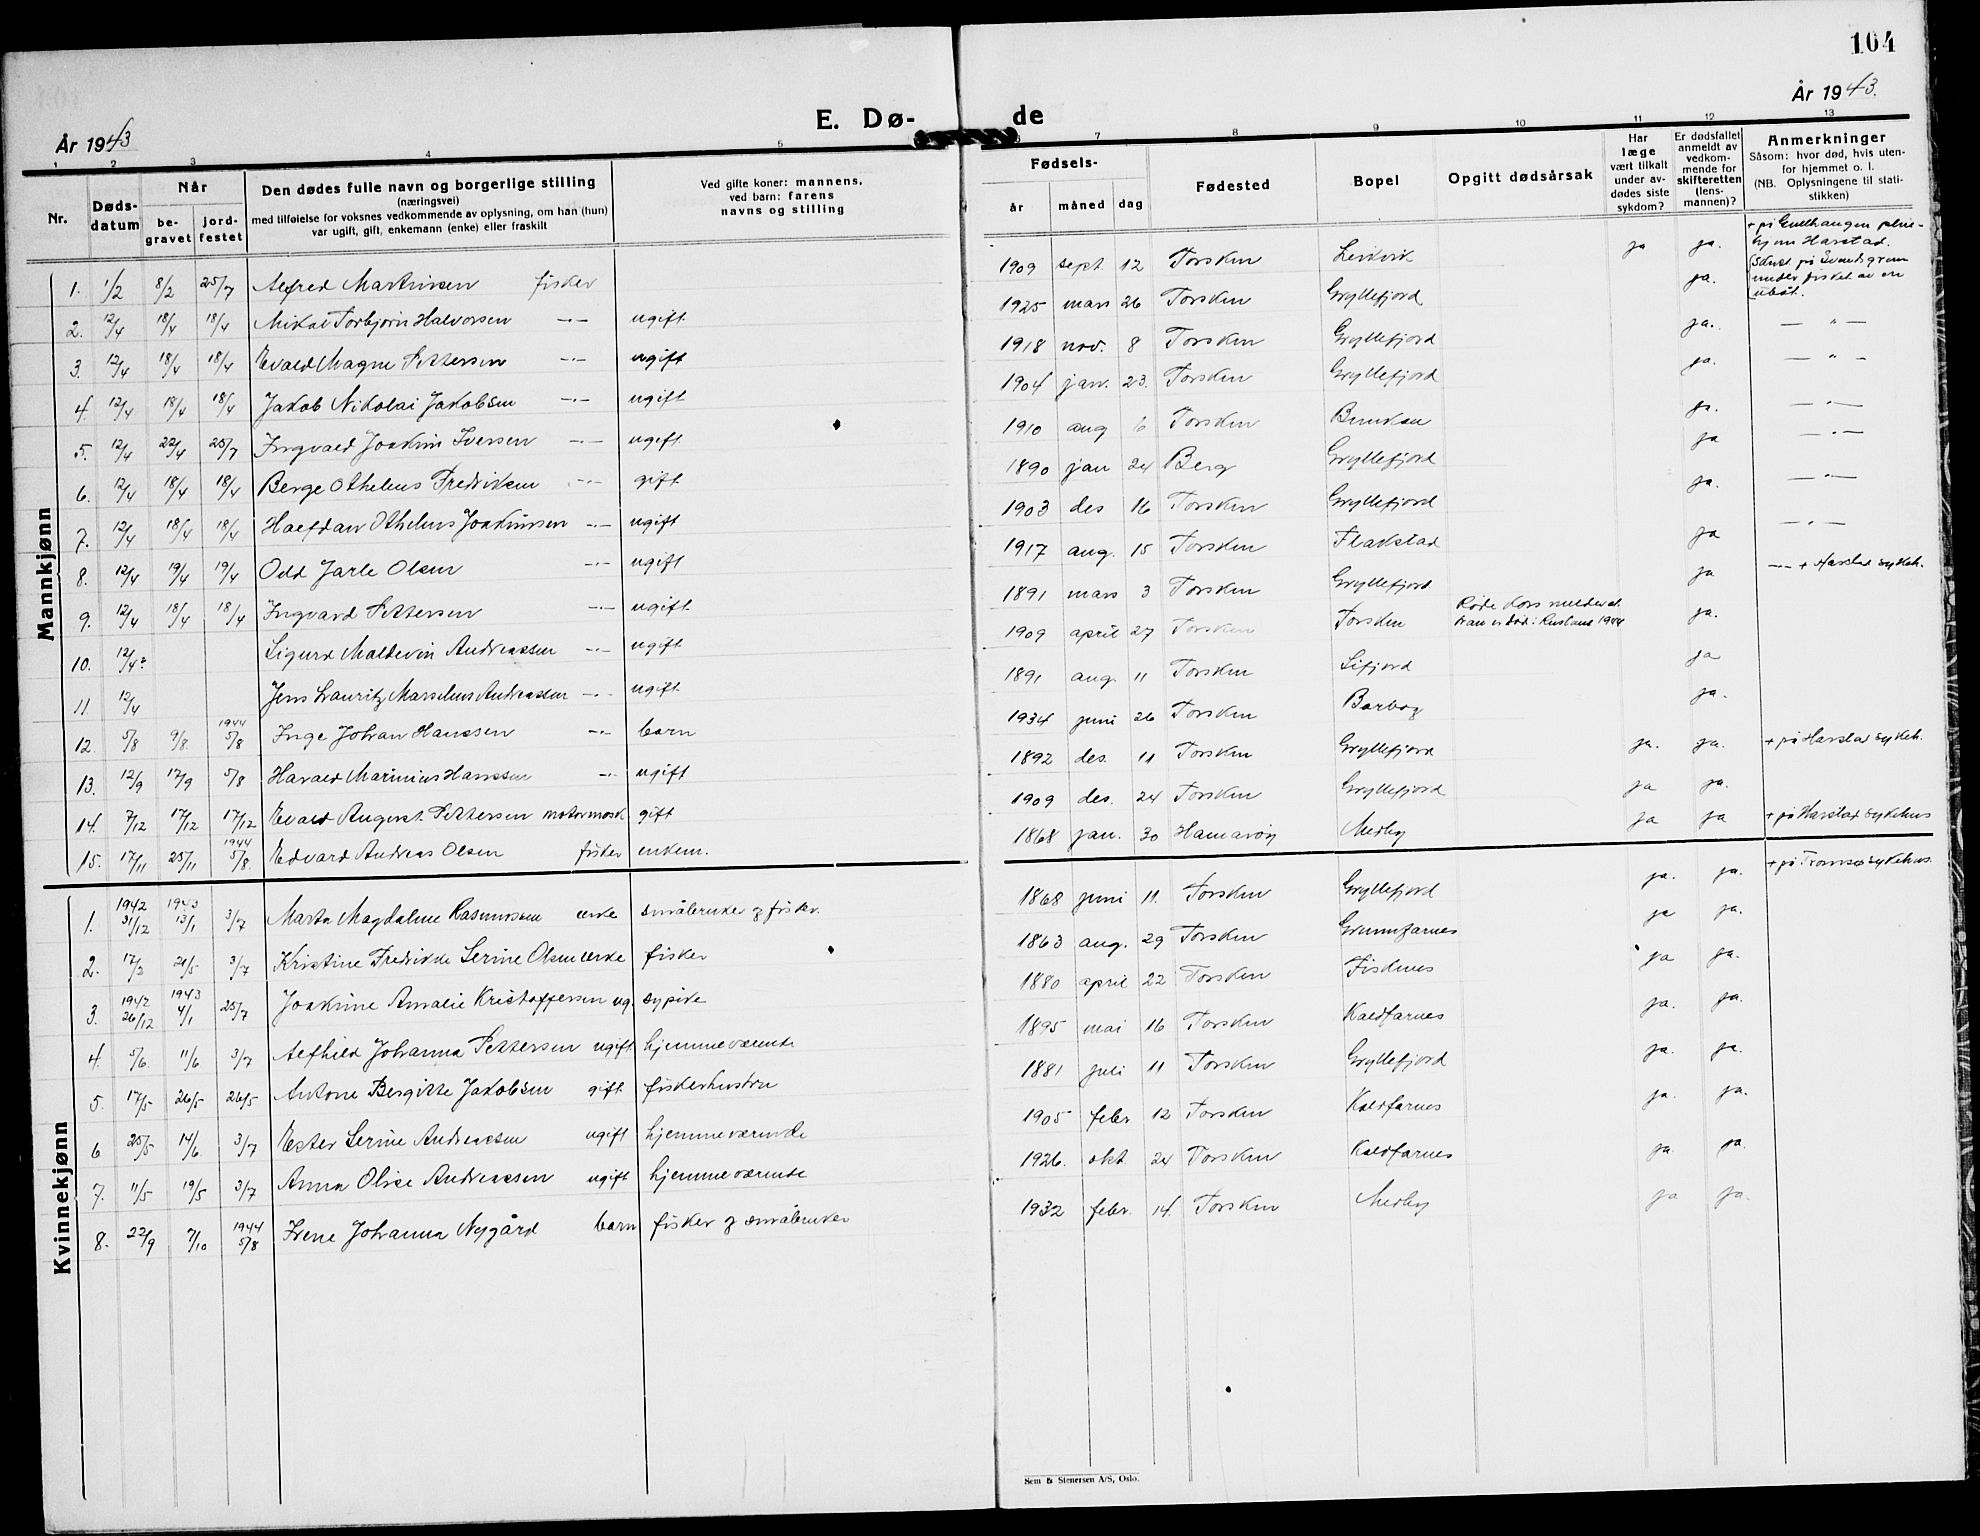 104
År 1943 E. Dø- de År 1943.
1 2 3 4 5 6 7 8 9 10 11 12 13
Nr. Dødsdatum Når begravet jordfestet
Den dødes fulle navn og borgerlige stilling
(næringsvei)
med tilføielse for voksnes vedkommende av oplysning, om han (hun)
var ugift, gift, enkemann (enke) eller fraskilt
Ved gifte koner: mannens,
ved barn: farens
navns og stilling
Fødsels- år måned dag
Fødested
Bopel
Opgitt dødsårsak
Har læge vært tilkalt under avdødes siste sykdom?
Er dødsfallet anmeldt av vedkommende for skifteretten (lensmannen)?
Anmerkninger
Såsom: hvor død, hvis utenfor hjemmet o. l.
(NB. Oplysningene til statistikken)
Mannkjønn
1. 1/2 8/2 25/7 Alfred Martinsen fisker 1909 sept. 12 Torsken Leikvik ja ja. + på Harstad.
2. 12/4 18/4 18/4 Mikal Torbjørn Halvorsen —"— ugift 1925 mars 26 Torsken Gryllefjord ja. Skutt på Svendsgrunn under fisket av en ubåt.
3. 12/4 18/4 18/4 Evald Magne Pettersen —"— ugift 1918 nov. 8 Torsken Gryllefjord ja. — " —
4. 12/4 18/4 18/4 Jakob Nikolai Jakobsen —"— ugift 1904 jan. 23. Torsken Gryllefjord ja. — " —
5. 12/4 22/4 25/7 Ingvald Joakim Iversen —"— ugift 1910 aug 6 Torsken ja. — " —
6. 12/4 18/4 18/4 Berge Othelius Fredriksen —"— gift 1890 jan 24 Berg Gryllefjord ja — " —
7. 12/4 18/4 18/4 Halfdan Othelius Joakimsen —"— ugift 1903 des 16 Torsken Gryllefjord ja. — " —
8. 12/4 19/4 19/4 Odd Jarle Olsen —"— ugift 1917 aug. 15 Torsken Flakstad ja — " —
9. 12/4 18/4 18/4 Ingvard Pettersen —"— ugift 1891 mars 3 Torsken Gryllefjord ja —"— + Harstad sykeh.
10. 12/4? Sigurd Maldevin Andreassen —"— ugift 1909 april 27 Torsken Torsken Røde Kors melder at han er død i Russland 1944 ja.
11. 12/4 Jens Lauritz Marselius Andreassen —"— ugift 1891 aug. 11 Torsken Sifjord ja
12. 5/8 9/8 1944 5/8 Inge Johan Hanssen —"— barn 1934 juni 26 Torsken ja.
13. 12/9 17/9 5/8 Harald Marinius Hanssen —"— ugift 1892 des. 11 Torsken Gryllefjord ja. ja. + på Harstad sykeh.
14. 7/12 17/12 17/12 Evald August Pettersen motormask gift 1909 des. 24 Torsken Gryllefjord ja ja.
15. 17/11 25/11 1944 5/8. Edvard Andreas Olsen fisker enkem. 1868 jan. 30 Hamarøy Medby ja ja + på Harstad sykehus
Kvinnekjønn
1. 1942 31/12 1943 13/1 3/7 Marta Magdalene Rasmussen enke småbruker og fisker. 1868 juni 11. Torsken Gryllefjord ja. ja. + på Tromsø sykehus.
2. 17/2 21/5 3/7 Kristine Fredrikke Serine Olsen enke fisker 1863 aug. 29 Torsken Grunnfarnes ja ja.
3. 1942 26/12 1943 4/1 25/7 Joakime Amalie Kristoffersen ug. sypike 1880 april 22 Torsken Fiskenes ja ja.
4. 5/6 11/6 3/7 Alfhild Johanna Pettersen ugift hjemmeværende 1895 mai 16 Torsken Kaldfarnes ja. ja.
5. 17/5 26/5 26/5 Antone Bergitte Jakobsen gift fiskerhustru 1881 juli 11 Torsken Gryllefjord ja. ja.
6 25/5 14/6 3/7 Ester Serine Andreassen ugift hjemmeværende 1905 febr. 12 Torsken Kaldfarnes ja. ja.
7. 11/5 19/5 3/7 Anna Olise Andreassen ugift hjemmeværende 1926. okt. 24 Torsken Kaldfarnes ja. ja.
8. 22/9 7/10 1944 5/8 Irene Johanna Nygård barn fisker og småbruker 1932 febr. 14. Torsken Medby ja ja.
Sem & Stenersen A/S, Oslo.